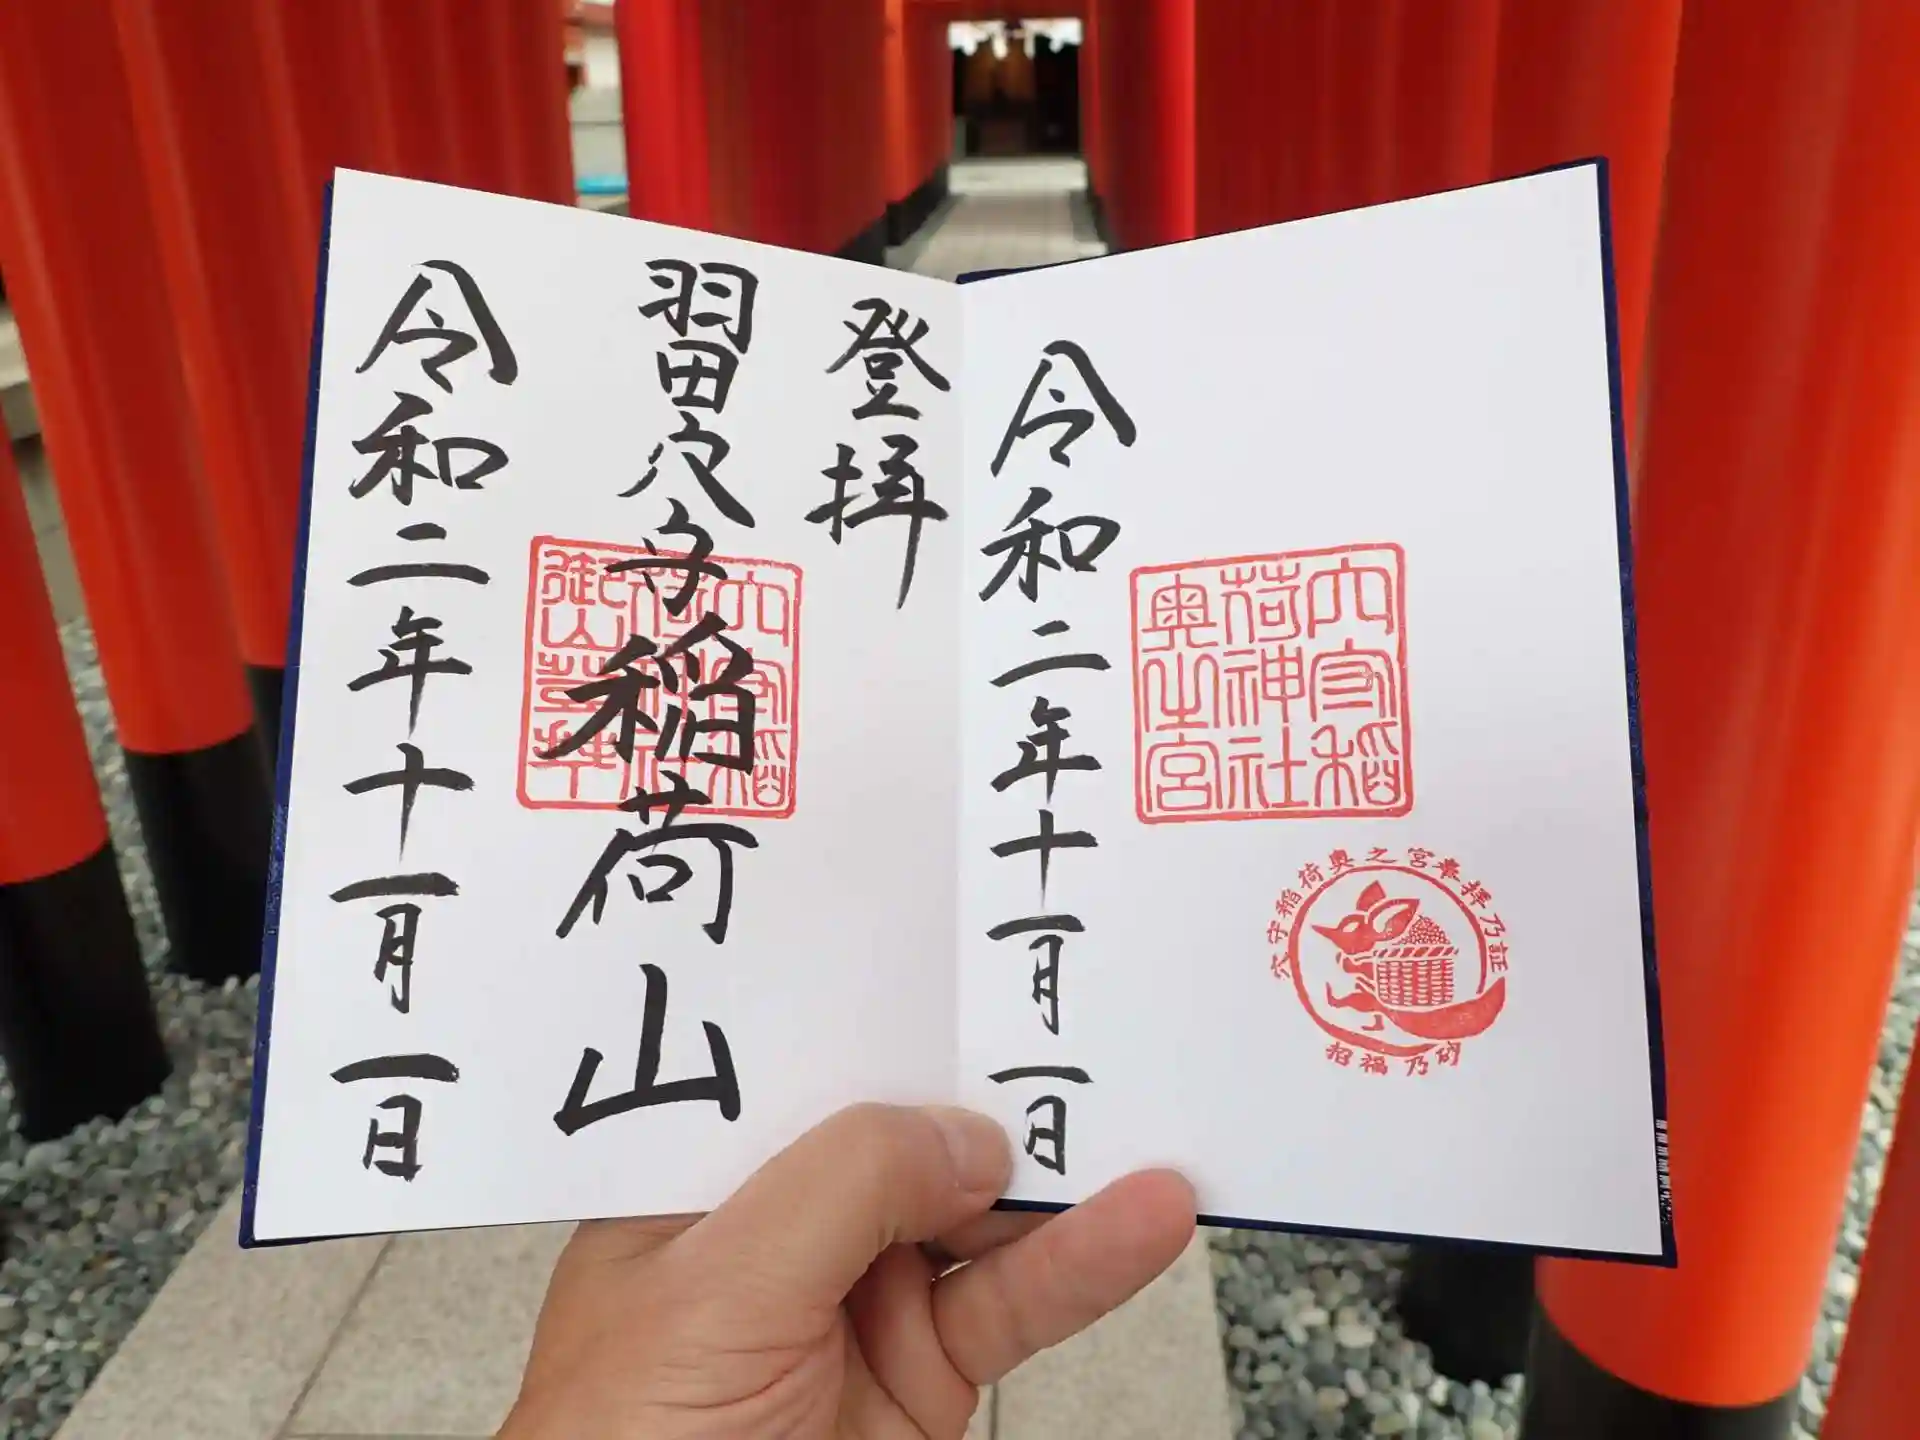 穴守稲
荷神社
奥山之宮
穴守稲荷奥之宮奉拝乃証
招福乃砂
令和二年十一月一日
登拝
羽田穴守稲荷山
穴守稲
荷神社
御山登拝
令和二年十一月一日